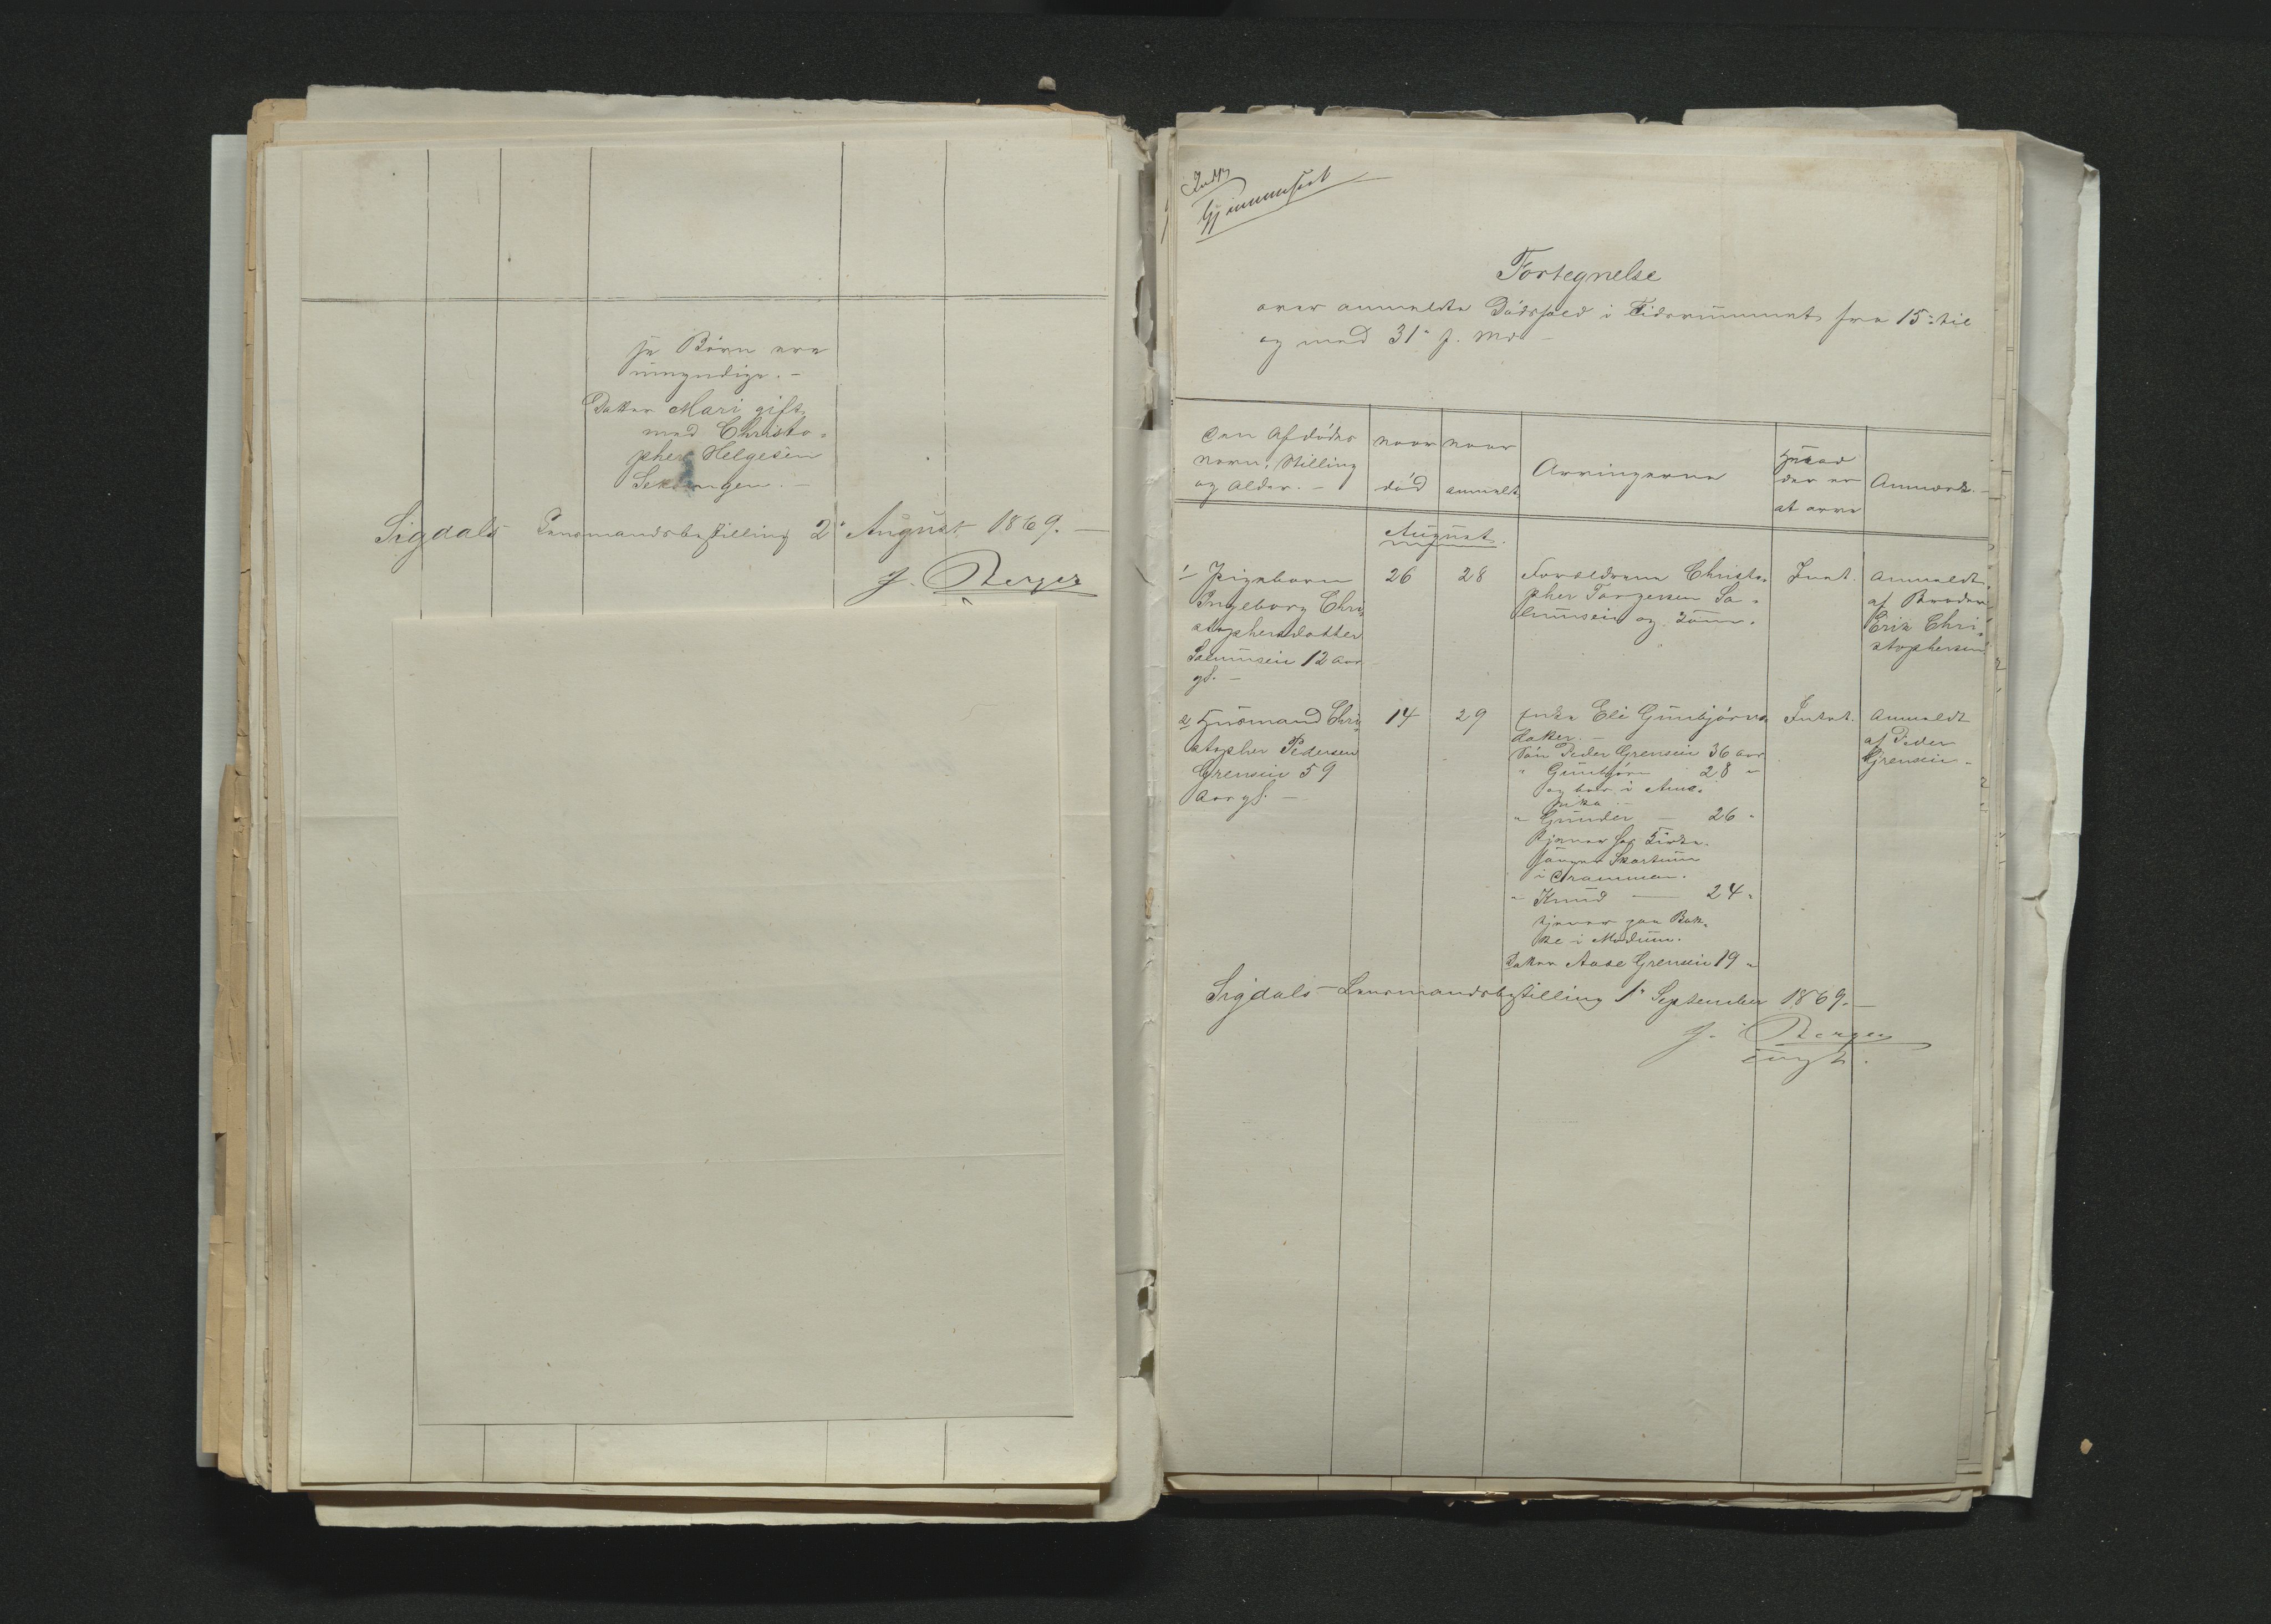 je Børn ere
umyndige. –
Datter Mari gift
med Christo-
pher Helgesen
Sigdals Lensmandsbestilling 2' August 1869. –
J. Berger
Gjennemseet
Fortegnelse
over anmeldte Dødsfald i Tidsrummet fra 15: til
og med 31' f. Md
Den Afdødes
Navn, Stilling
og Alder. –
naar
død
naar
anmeldt
Arvingerne
Hvad
der er
at arve
Anmærk. –
August.
1 Pigebarn
Ingeborg Chri-
stophersdatter
12 Aar
gl. –
26
28
Forældrene Christo-
pher Torgersen
og Kone.
Intet.
Anmeldt
af Broder
Erik Chri-
stophersen
2 Husmand Chri-
stopher Pedersen
Grensen 59
Aar gl. –
14
29
Enke Eli Gunbjørns-
datter. –
Søn Peder Grensen 36 Aar
" Gunbjørn 28 "
og bor i Ame-
rika. –
" Gunder – 26 "
tjener hos
i Drammen.
" Knud – 24 "
tjener paa Bak-
ke i Modum.
Datter Aase Grensen 19 "
Intet.
Anmeldt
af Peder
Grensen –
Sigdals Lensmandsbestilling 1' September 1869. –
J. Berger